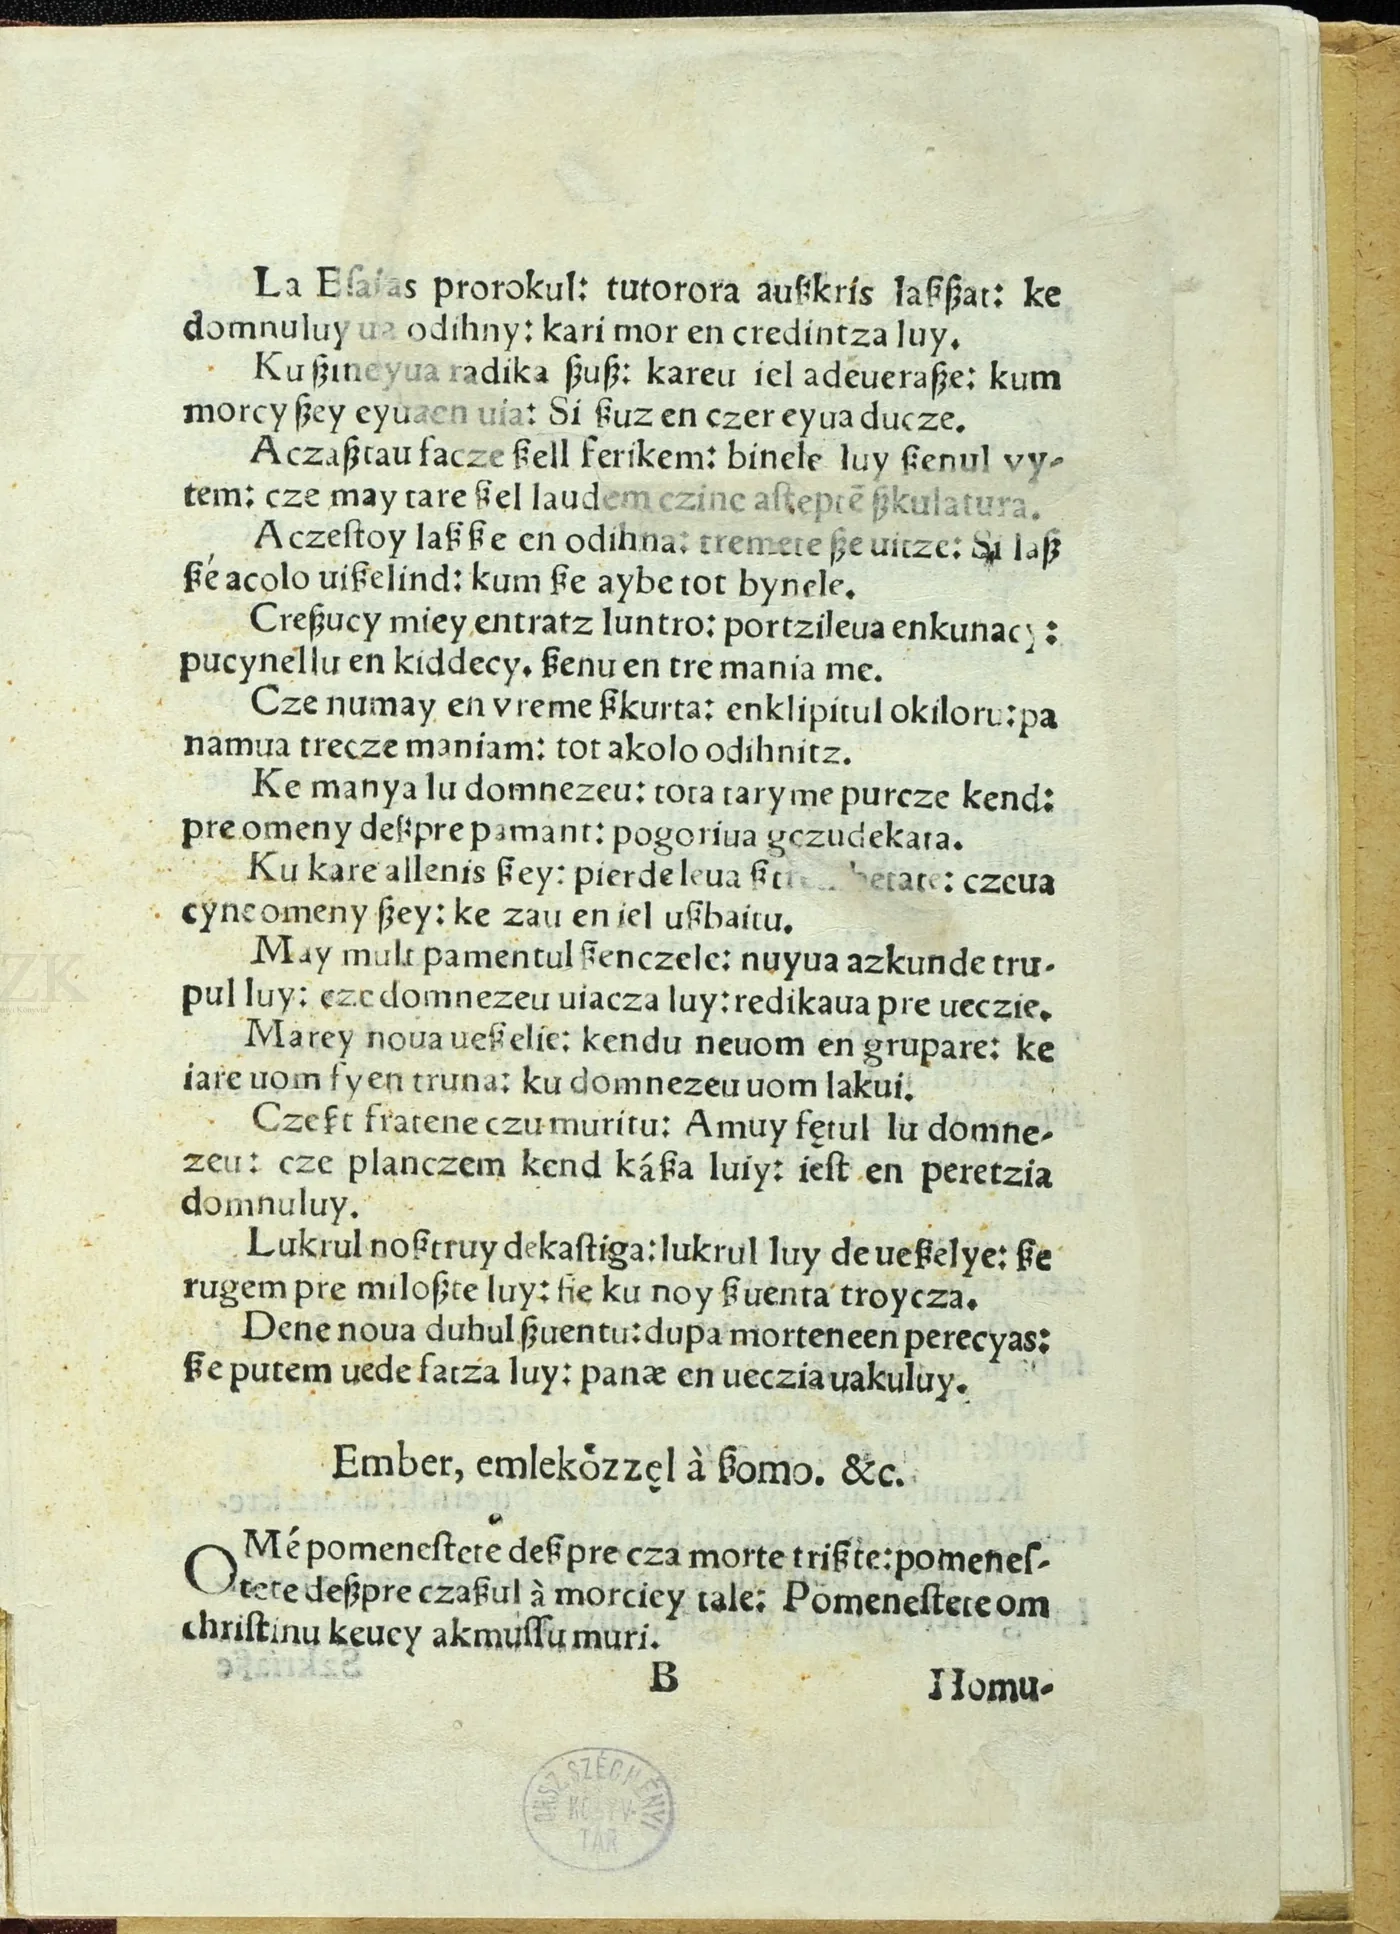 La Esaias prorokul: tutorora außkris laßßat: ke
domnuluy ua odihny: kari mor en credintza luy.
Ku ßineyua radika ßuß: kareu iel adeueraße: kum
morcy ßey eyuaen uia: Si ßuz en czer eyua ducze.
Aczaßtau facze ßell ferikem: binele luy ßenul vy-
tem: cze may tare ßel laudem czine aſteptē ßkulatura.
Aczeſtoy laßße en odihna: tremete ße uitze: Si laß
ßé acolo uißelind: kum ße aybe tot bynele.
Creßucy miey entratz luntro: portzileua enkunacy:
pucynellu en kiddecy. ßenu en tre mania me.
Cze numay en vreme ßkurta: enklipitul okiloru: pa
namua trecze maniam: tot akolo odihnitz.
Ke manya lu domnezeu: tota tary me purcze kend:
pre omeny deßpre pamant: pogoriua gczudekata.
Ku kare allenis ßey: pierdeleua : czeua
cyneomeny ßey: ke zau en iel ußbaitu.
May mult pamentul ßenczele: nuyua azkunde tru-
pul luy: cze domnezeu uiacza luy: redikaua pre ueczie.
Marey noua ueßelie: kendu neuom en grupare: ke
iare uom fy en truna: ku domnezeu uom lakui.
Czeßt fratene czu muritu: Amuy fętul lu domne-
zeu: cze planczem kend káßa luiy: ieſt en peretzia
domnuluy.
Lukrul noßtruy dekaſtiga: lukrul luy de ueßelye: ße
rugem pre miloßte luy: fie ku noy ßuenta troycza.
Dene noua duhul ßuentu: dupa morteneen perecyas:
ße putem uede fatza luy: panæ en ueczia uakuluy.
Ember, emlekőzzęl à ßomo. &c.
OMé pomeneſtete deßpre cza morte trißte: pomeneſ-
tete deßpre czaßul à morciey tale: Pomeneſtete om
chriſtinu keucy akmuſſu muri.
B
Homu-
ORSZ. SZÉCHÉNYI
KÖNYV-
TÁR
ZK